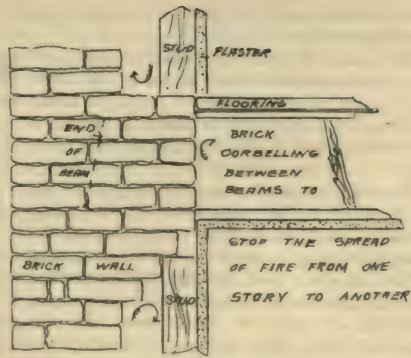 STUD
PLASTER
FLOORING
END
OF
BEAM
BRICK
CORBELLING
BETWEEN
BEAMS TO
STOP THE SPREAD
OF FIRE FROM ONE
STORY TO ANOTHER
BRICK WALL
STUD